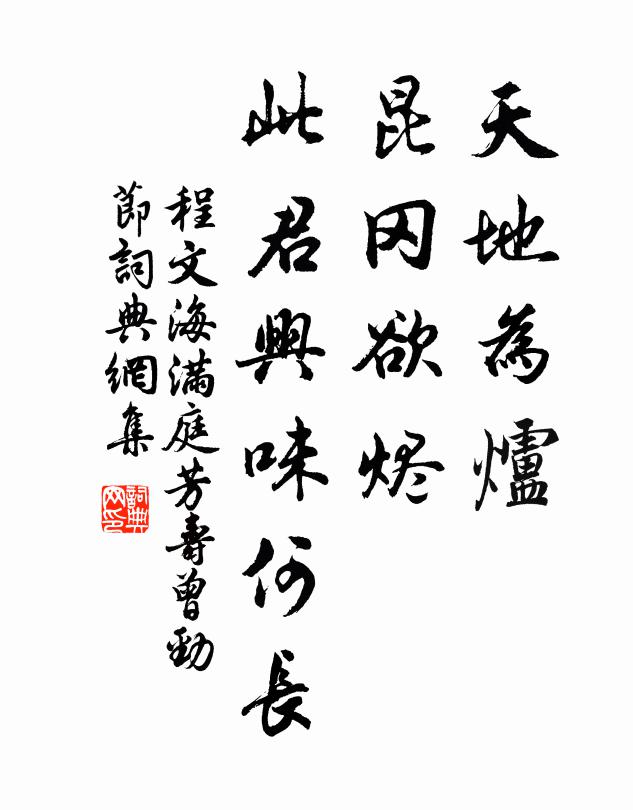 天地為爐
昆冈欲烬
此君興味何長
程文海满庭芳壽曾勁
節詞典網集
詞典网印